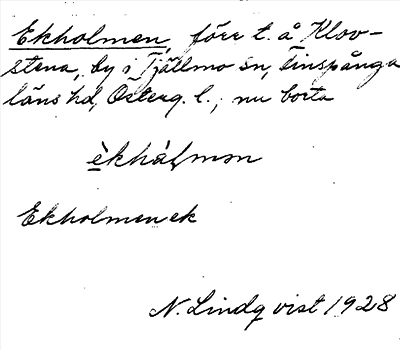 Ekholmen, förr t. å Klov-
stena, by i Tjällmo sn, Finspånga
läns hd, Österg. l.; nu borta
èkhál̨mən
Ekholmen ek
N. Lindqvist 1928